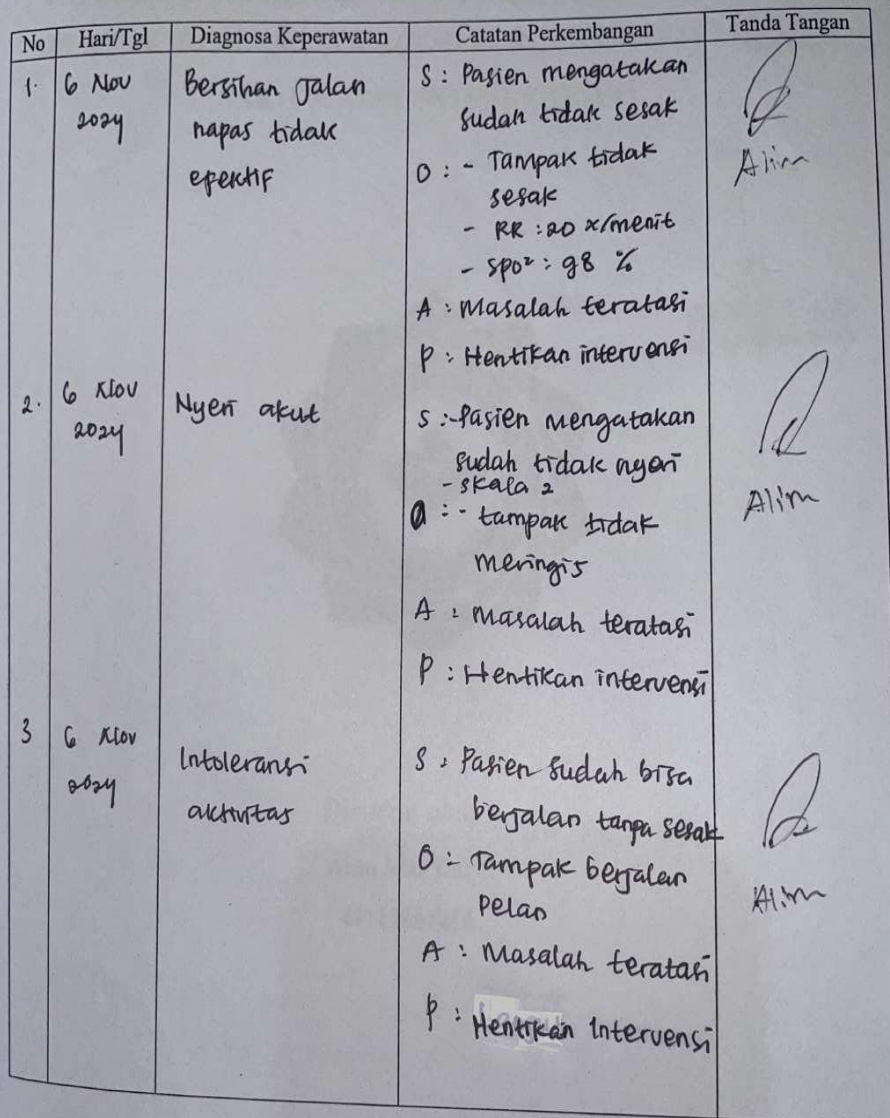 No Hari/Tgl Diagnosa Keperawatan Catatan Perkembangan Tanda Tangan
1. 6 Nov 2024
Bersihan Jalan
napas tidak
efektif
S : Pasien mengatakan
sudah tidak sesak
O : - Tampak tidak
sesak
- RR : 20 x/menit
- SPO² : 98 %
A : Masalah teratasi
P : Hentikan intervensi
Alim
2. 6 Nov
2024
Nyeri akut
S : - Pasien mengatakan
sudah tidak nyeri
- skala 2
O : - tampak tidak
meringis
A : Masalah teratasi
P : Hentikan intervensi
Alim
3 6 Nov
2024
Intoleransi
aktivitas
S : Pasien sudah bisa
berjalan tanpa sesak
O : - Tampak berjalan
pelan
A : Masalah teratasi
P : Hentikan Intervensi
Alim